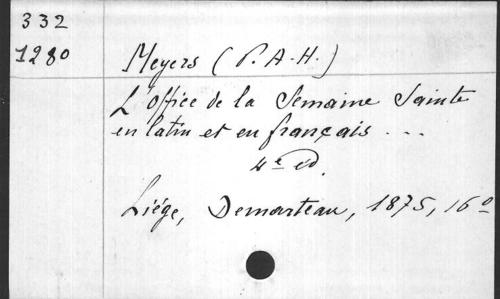 332
1280
Meyers (P. A-H.)
L'Office de la Semaine Sainte
en latin et en français ...
4e éd.
Liége, Demarteau, 1875, 16o